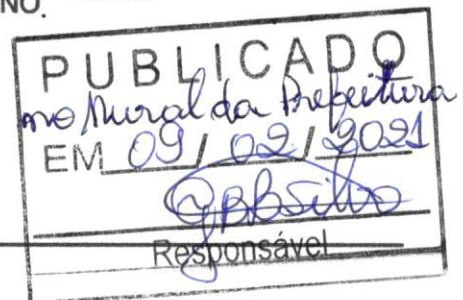 NO.
PUBLICADO
no Mural da Prefeitura
EM 09 / 02 / 2021
Responsável